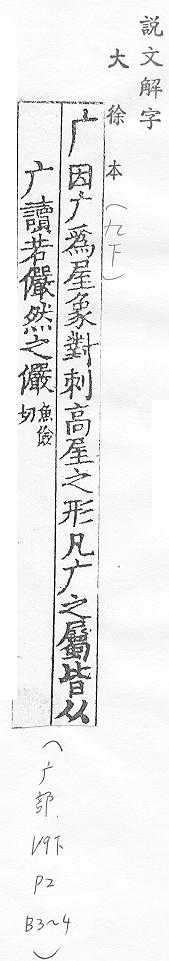 說文解字
大徐本(九下)
广因广爲屋象對刺高屋之形凡广之屬皆从
广讀若儼然之儼魚儉切
(广部.
V9下
P2
B3~4)